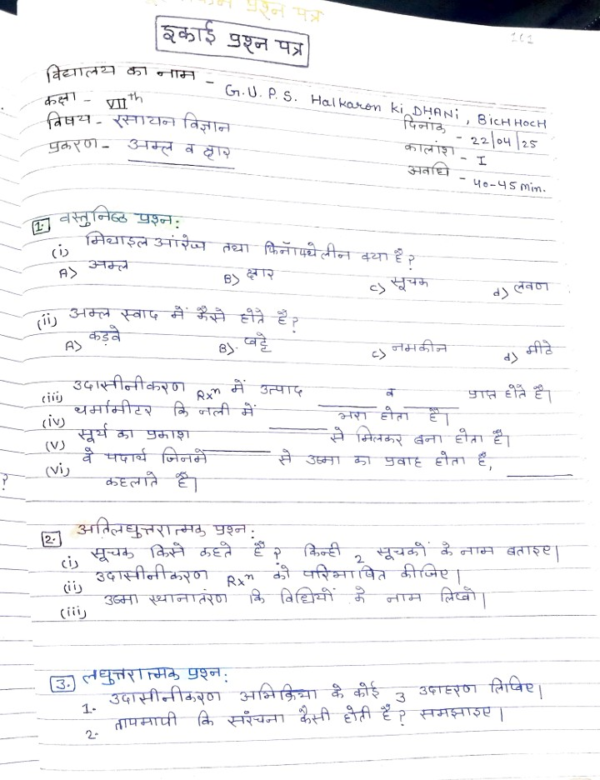 इकाई प्रश्न पत्र
विद्यालय का नाम - G.U.P.S. Halkaron Ki DHANi, BICHHOCH
कक्षा - VIIth
दिनांक - 22/04/25
विषय - रसायन विज्ञान
कालांश - I
प्रकरण - अम्ल व क्षार
अवधि - 40-45 Min.
1. वस्तुनिष्ठ प्रश्न:
(i) मिथाइल ऑरेंज तथा फिनॉफ्थेलीन क्या है?
A) अम्ल B) क्षार C) सूचक d) लवण
(ii) अम्ल स्वाद में कैसे होते है?
A) कड़वे B) खट्टे C) नमकीन d) मीठे
(iii) उदासीनीकरण Rxn में उत्पाद ______ व ______ प्राप्त होते है।
(iv) थर्मामीटर कि नली में ______ भरा होता है।
(v) सूर्य का प्रकाश ______ से मिलकर बना होता है।
(vi) वे पदार्थ जिनमें ______ से उष्मा का प्रवाह होता है, ______
कहलाते हैं।
2. अतिलघुत्तरात्मक प्रश्न:
(i) सूचक किसे कहते हैं? किन्ही 2 सूचकों के नाम बताइए।
(ii) उदासीनीकरण Rxn को परिभाषित कीजिए।
(iii) उष्मा स्थानातंरण कि विधियों के नाम लिखो।
3. लघुत्तरात्मक प्रश्न:
1. उदासीनीकरण अभिक्रिया के कोई 3 उदाहरण लिखिए।
2. तापमापी कि सरंचना कैसी होती है? समझाइए।